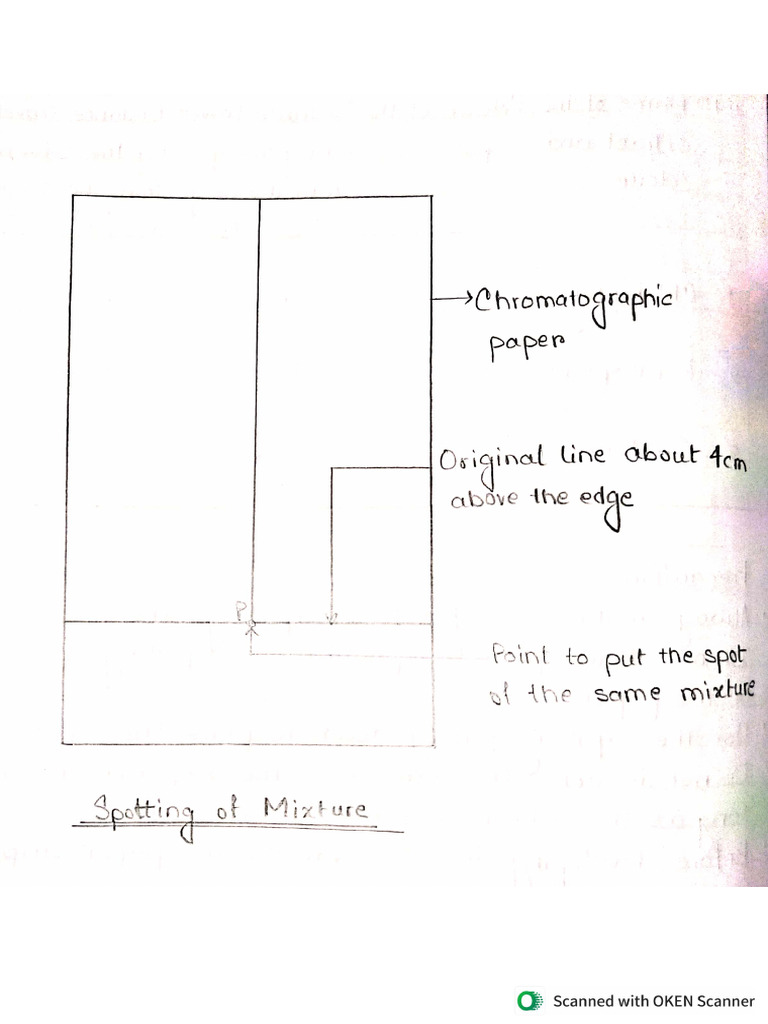 Chromatographic
paper
Original line about 4cm
above the edge
P
Point to put the spot
of the same mixture
Spotting of Mixture
Scanned with OKEN Scanner